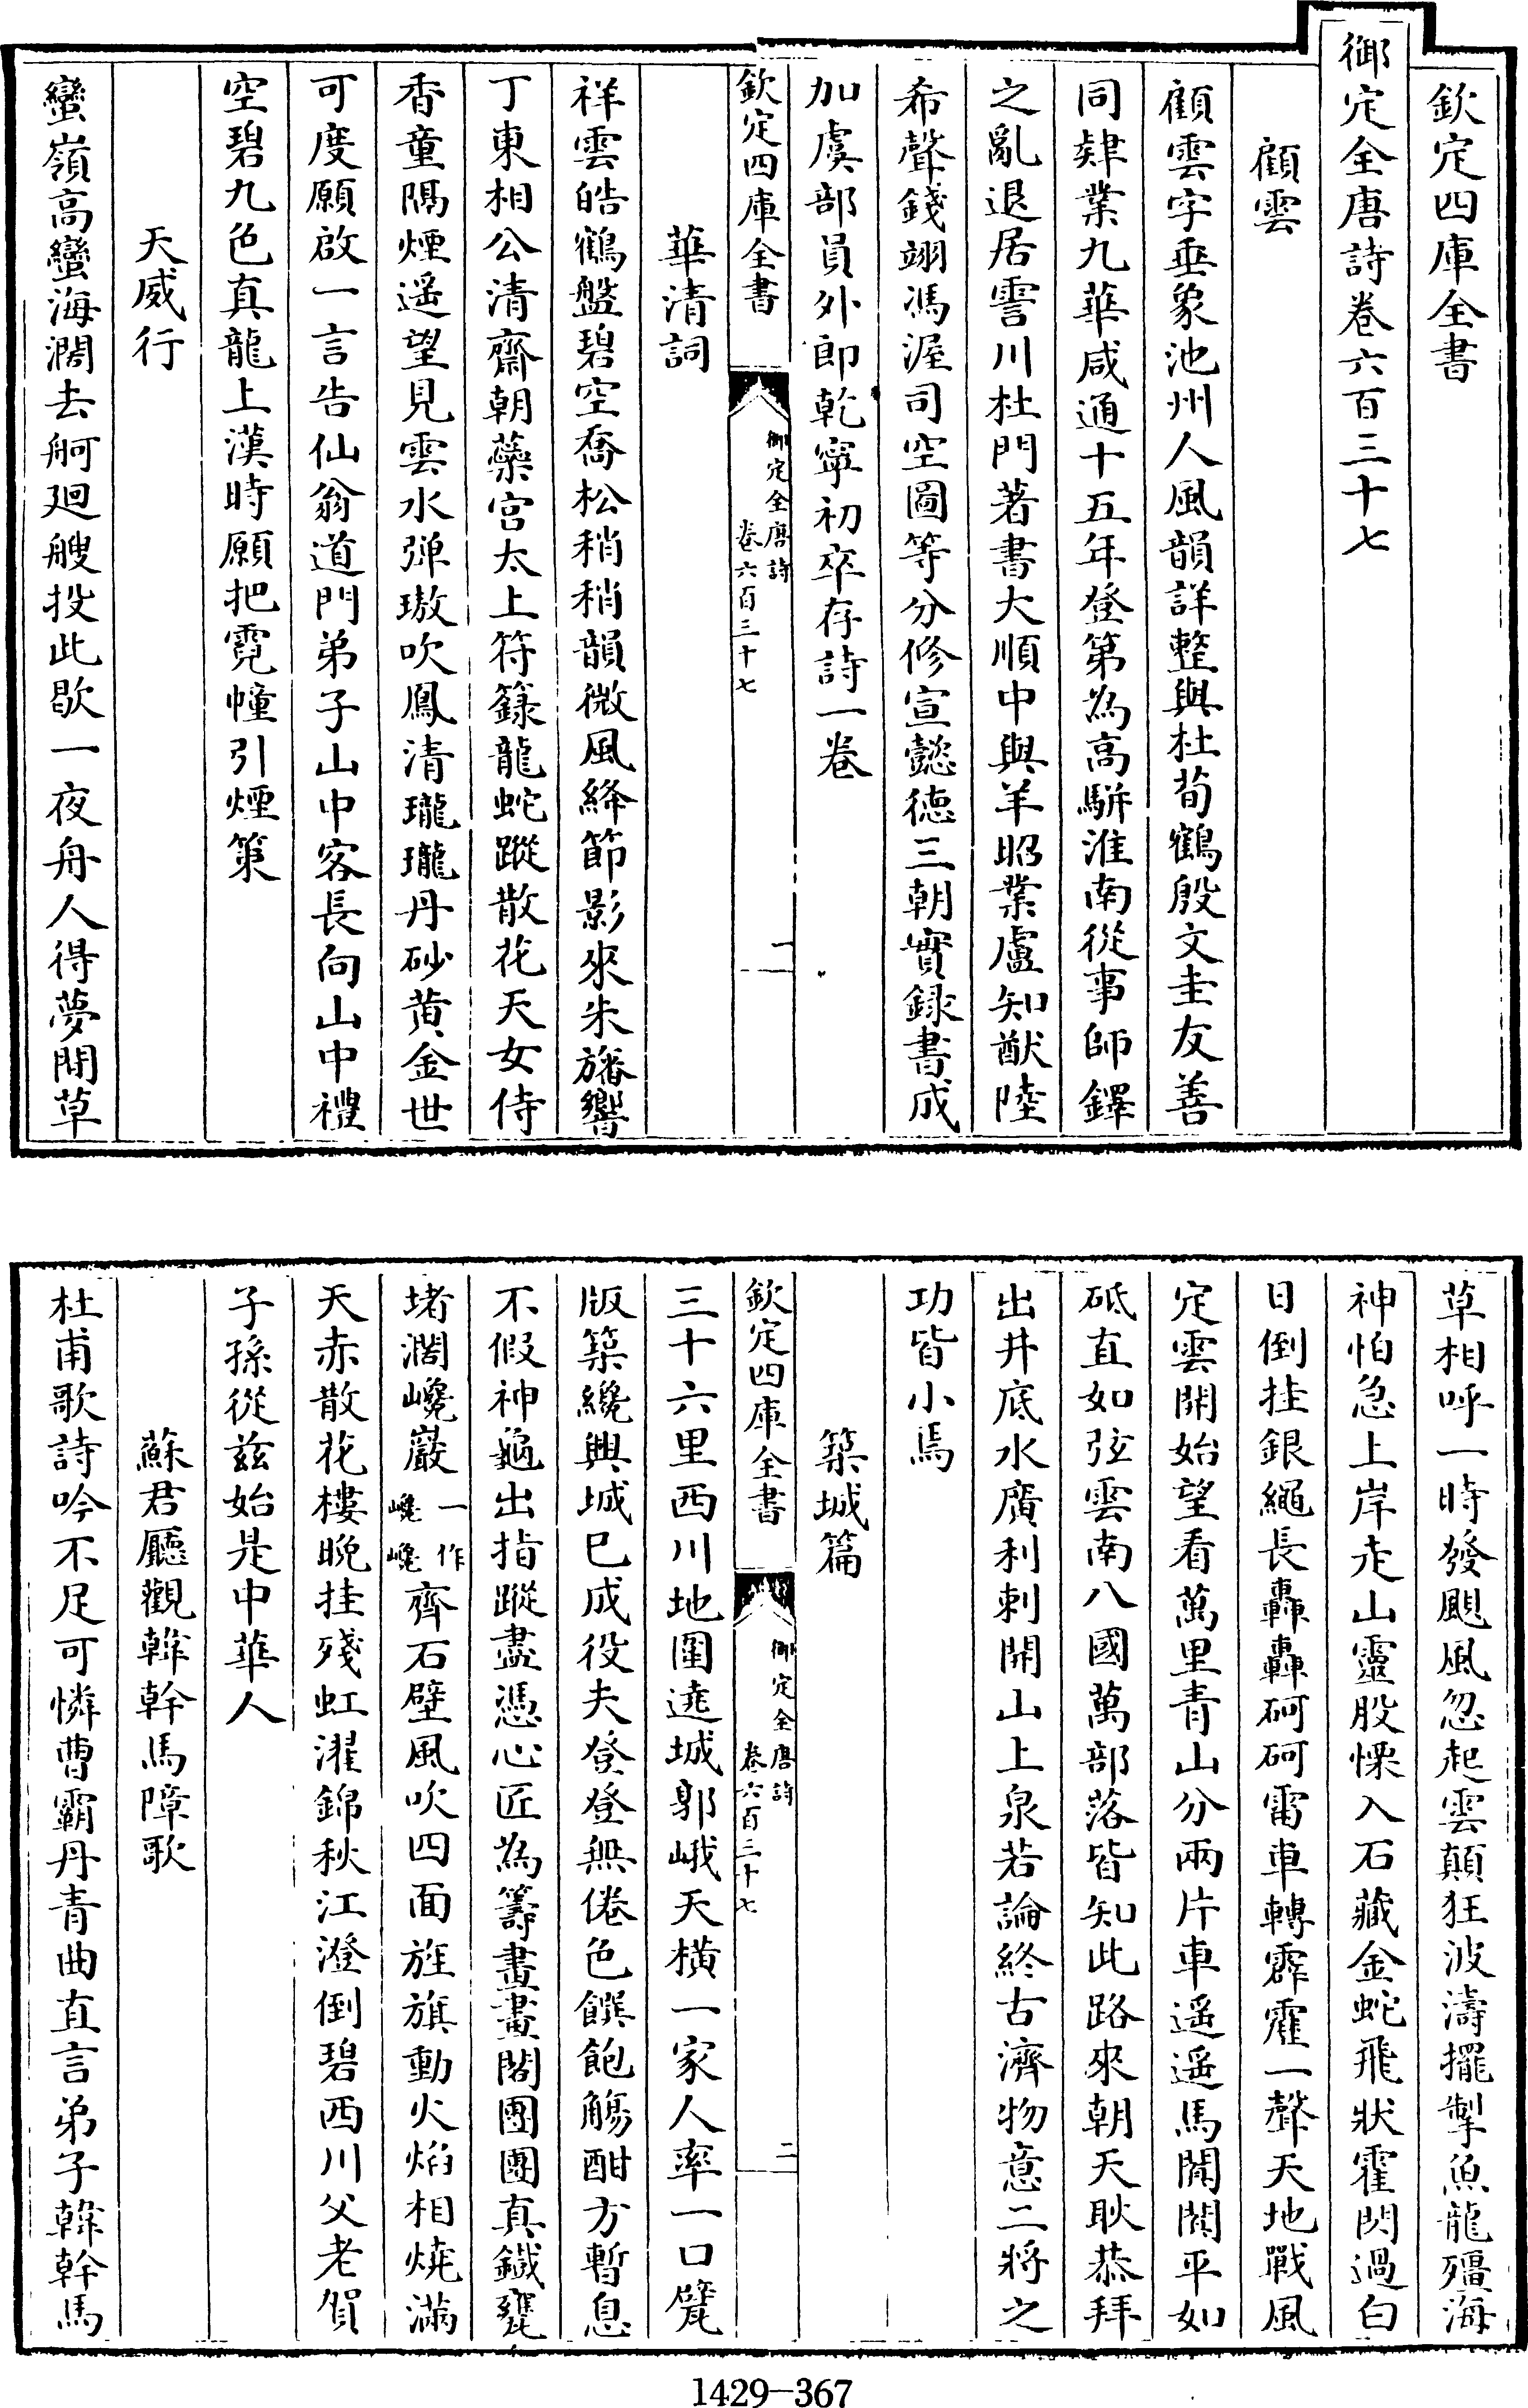 欽定四庫全書
御定全唐詩卷六百三十七
顧雲
顧雲字垂象池州人風韻詳整與杜荀鶴殷文圭友善
同肄業九華咸通十五年登第為高駢淮南從事師鐸
之亂退居霅川杜門著書大順中與羊昭業盧知猷陸
希聲錢翊馮渥司空圖等分修宣懿徳三朝實錄書成
加虞部員外郎乾寧初卒存詩一卷
欽定四庫全書
御定全唐詩
卷六百三十七
一
華清詞
祥雲皓鶴盤碧空喬松稍稍韻微風絳節影來朱旛響
丁東相公清齋朝蘂宮太上符籙龍蛇蹤散花天女侍
香童隔煙遥望見雲水弹璈吹鳳清瓏瓏丹砂黄金世
可度願啟一言告仙翁道門弟子山中客長向山中禮
空碧九色真龍上漢時願把霓幢引煙策
天威行
蠻嶺高蠻海濶去舸迴艘投此歇一夜舟人得夢間草
草相呼一時發颶風忽起雲顛狂波濤擺掣魚龍殭海
神怕急上岸走山靈股慄入石藏金蛇飛狀霍閃過白
日倒挂銀繩長轟轟砢砢雷車轉霹靂一聲天地戰風
定雲開始望看萬里青山分兩片車遥遥馬闐闐平如
砥直如弦雲南八國萬部落皆知此路來朝天耿恭拜
出井底水廣利刺開山上泉若論終古濟物意二將之
功皆小焉
築城篇
欽定四庫全書
御定全唐詩
卷六百三十七
二
三十六里西川地圍遶城郭峨天橫一家人率一口甓
版築纔興城已成役夫登登無倦色饌飽觴酣方暫息
不假神龜出指蹤盡憑心匠為籌畫畫閣團團真鐵甕
堵濶巉巖一作巉巉齊石壁風吹四面旌旗動火焰相燒滿
天赤散花樓晚挂殘虹濯錦秋江澄倒碧西川父老賀
子孫從兹始是中華人
蘇君廳觀韓幹馬障歌
杜甫歌詩吟不足可憐曹霸丹青曲直言弟子韓幹馬
1429-367